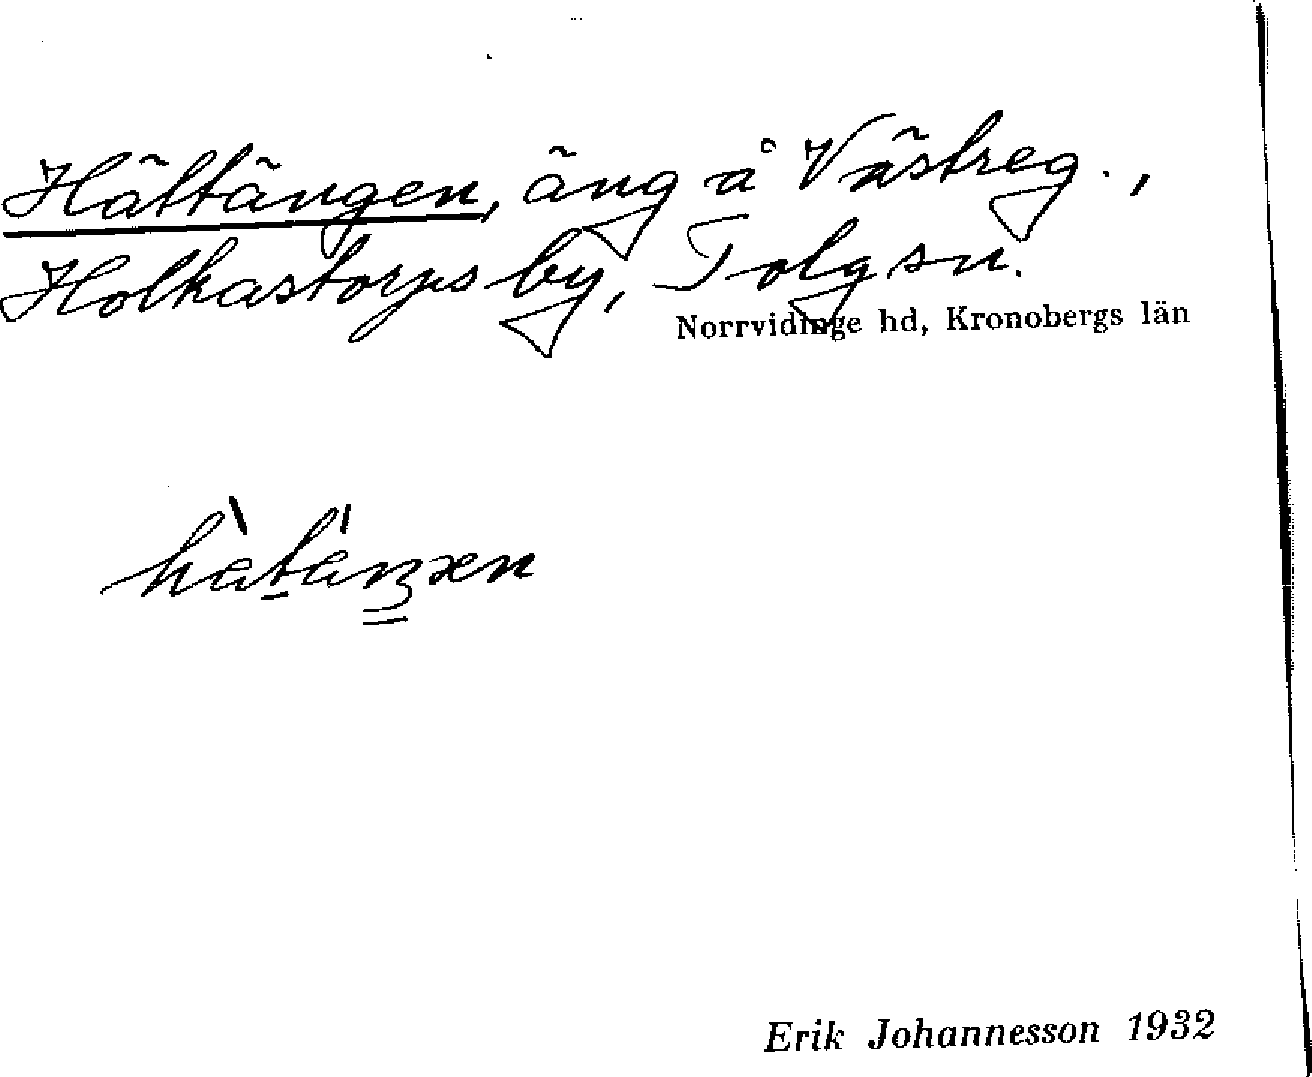 Hättängen, äng å Västreg.,
Holkastorps by, Tolg sn.
Norrvidinge hd, Kronobergs län
Erik Johannesson 1932